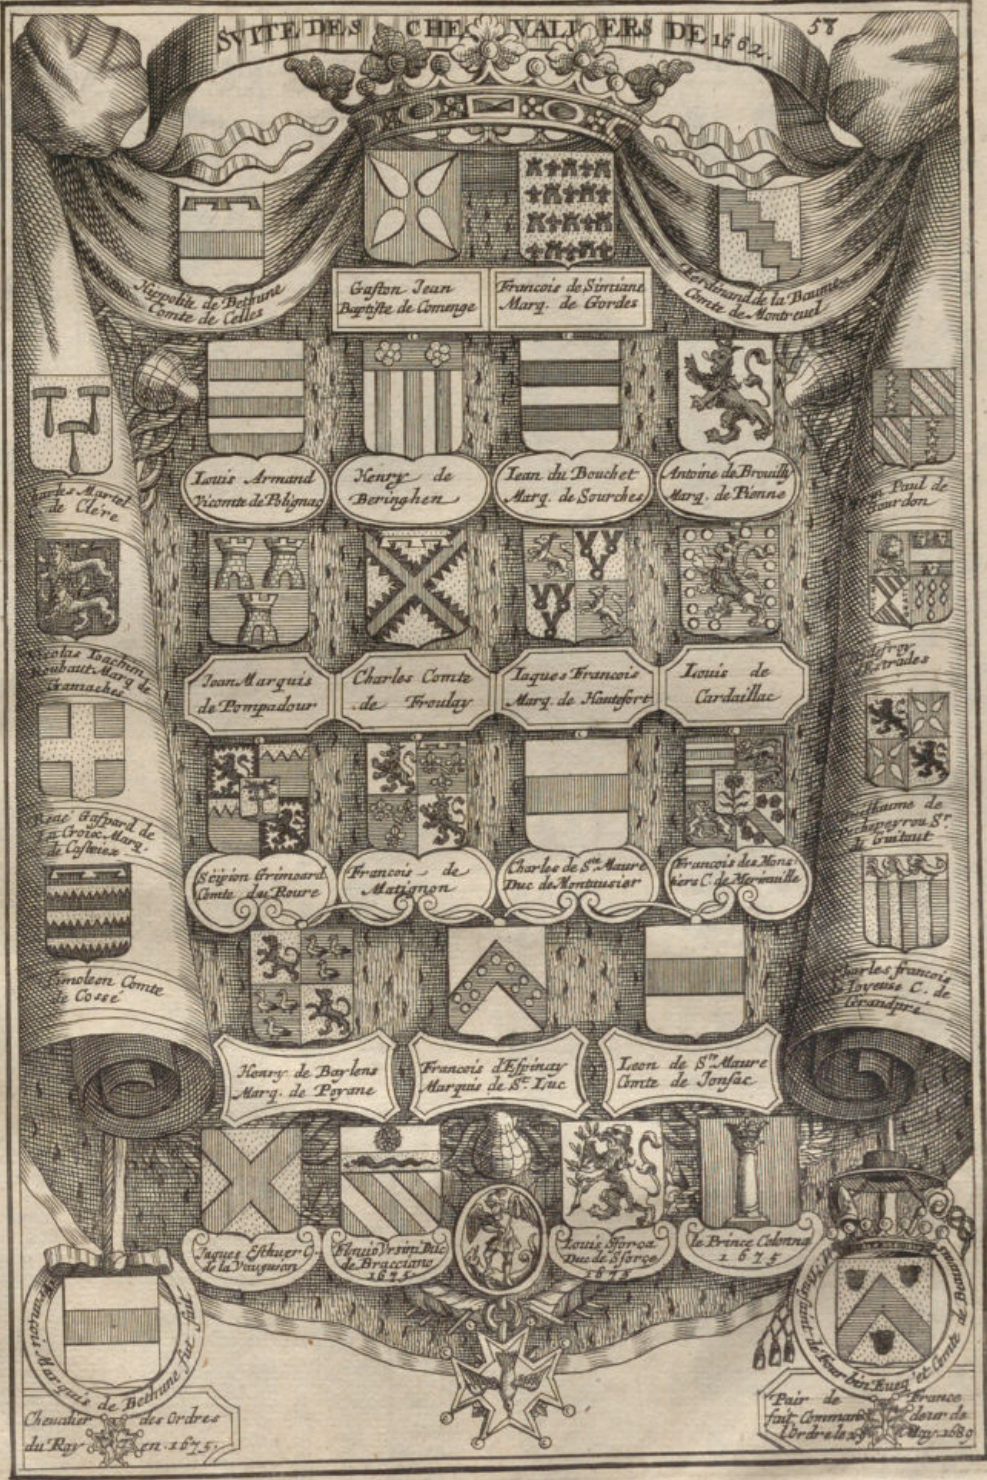 SVITE DES CHEVALIERS DE 1662.
58
Hippolite de Bethune
Comte de Celles
Gaston Jean
Baptiste de Comenge
Francois de Simiane
Marq. de Gordes
Ferdinand de la Baume
Comte de Montreuel
Charles Martel
C. de Clére
Louis Armand
Vicomte de Polignac
Henry de
Beringhen
Iean du Bouchet
Marq. de Sourches
Antoine de Brouilly
Marq. de Pienne
Paul de
Nicolas Ioachim
Rouhaut Marq. de
Gamaches
Jean Marquis
de Pompadour
Charles Comte
de Froulay
Iaques Francois
Marq. de Hautefort
Louis de
Cardaillac
René Gaspard de
La Croix Marq.
de Castries
Scipion Grimoard
Comte du Roure
Francois de
Matignon
Charles de Ste. Maure
Duc de Montausier
Francois des Mons
tiers C. de Merinville
Guillaume de
Pechpeyrou Sr
de Guitaut
Timoleon Comte
de Cossé
Henry de Baylens
Marq. de Poyane
Francois d'Espinay
Marquis de St. Luc
Leon de Ste. Maure
Comte de Jonsac
Charles francois
de Joyeuse C. de
Grandpré
Iaques Esthuer C.
de la Vauguion
Flauio Vrsini Duc
de Bracciano
1675
Louis Sforca
Duc de Sforce
1675
le Prince Colonna
1675
François Marquis de Bethune fut fait
Cheualier des Ordres
du Roy en 1675.
de Fourbin Eueq. et Comte de Beauuais
Pair de France
fait Comman deur de
l'Ordre le May 1689